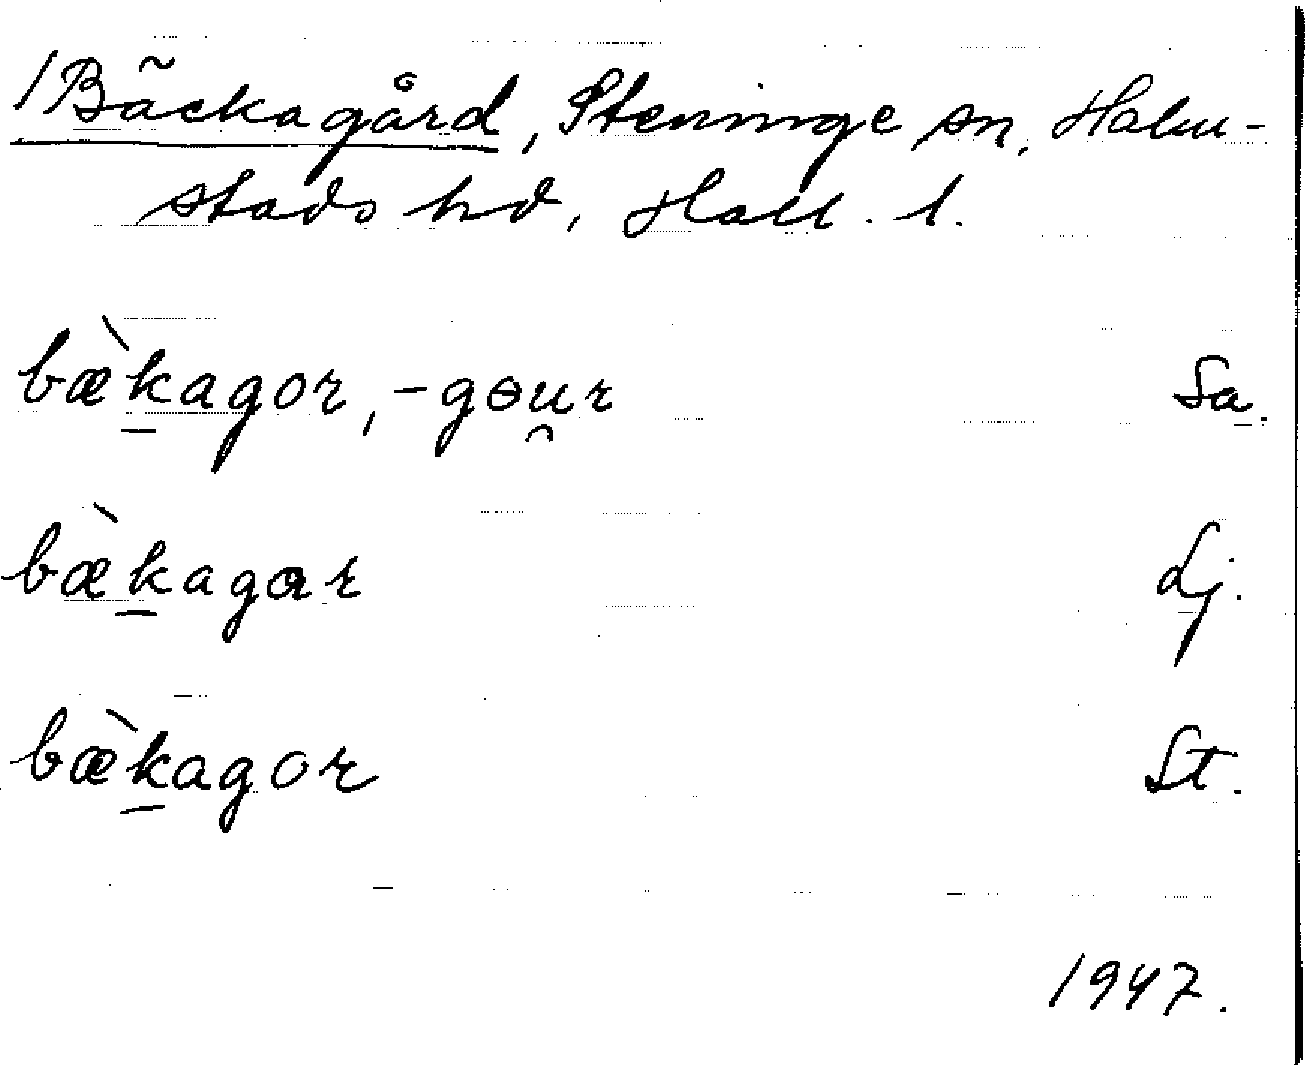 /Bäckagård, Steninge sn, Halm-
stads hd, Hall. l.
bæ̀k̲agor, -gɵu̯r Sa.
bæ̀k̲agɑr Lj.
bæ̀k̲agor St.
1947.